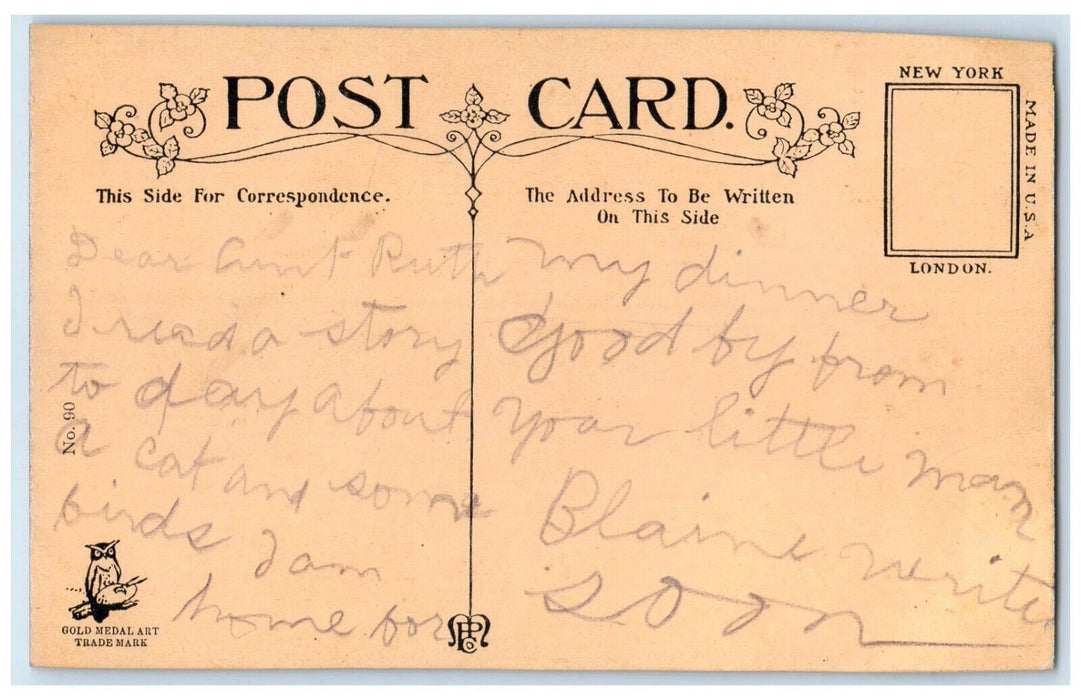 POST CARD.
NEW YORK
MADE IN U.S.A
LONDON.
This Side For Correspondence.
The Address To Be Written
On This Side
Dear Aunt Ruth
I read a story
to day about
a cat and some
birds I am
home for
my dinner
Good by from
your little man
Blaine write
soon
No. 90
GOLD MEDAL ART
TRADE MARK